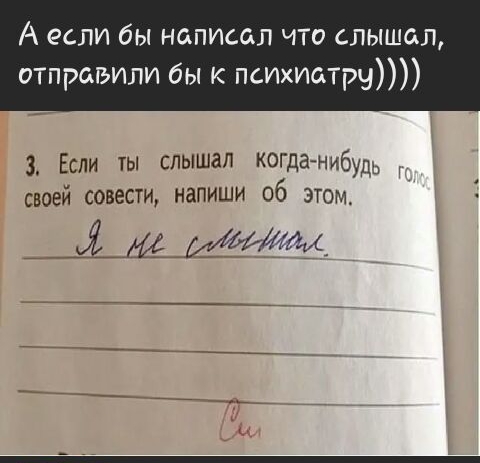 А если бы написал что слышал,
отправили бы к психиатру))))
3. Если ты слышал когда-нибудь голос
своей совести, напиши об этом.
Я не слышал.
См